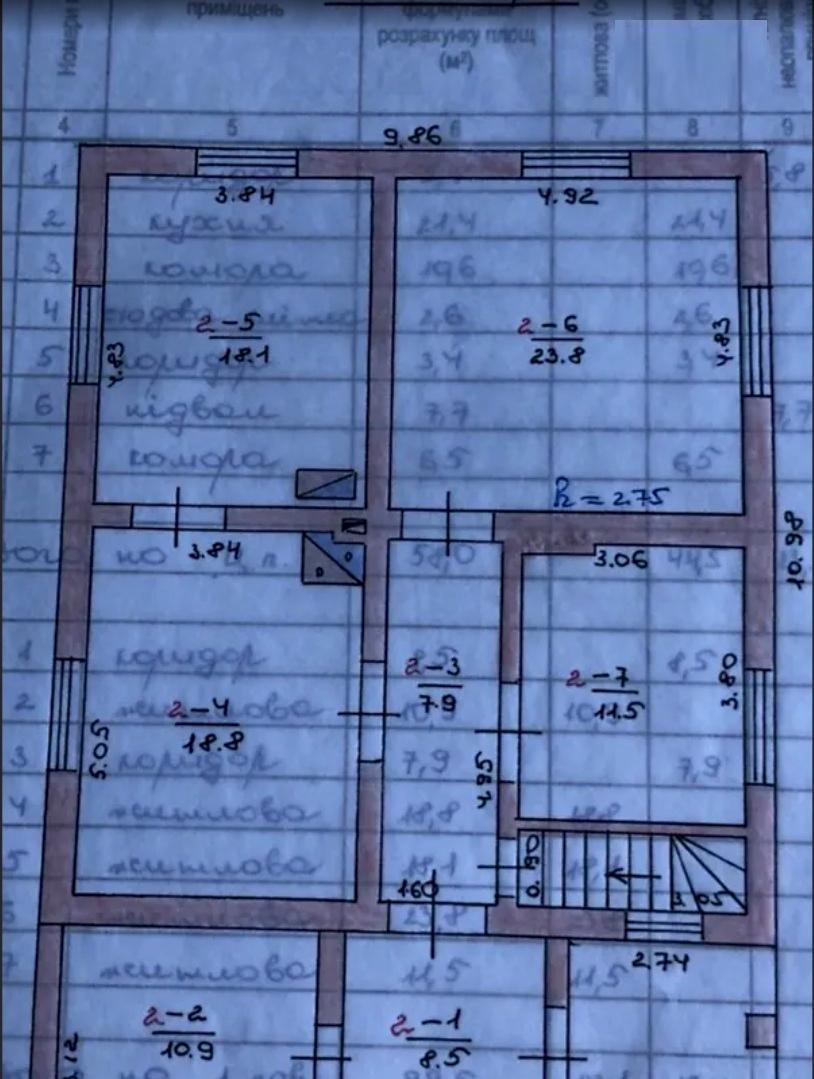 Номери
приміщень
формулами
розрахунку площ
(м²)
житлова
4 5 6 7 8 9
9.86
1 коридор
3.84 4.92
2 кухня 21,4 21,4
3 комора 19,6 19,6
4 2,6 2,6
2-5
18.1
2-6
23.8
4.83 4.83
5 коридор 3,4
6 підвал 7,7 7,7
7 комора 6,5 6,5
h = 2.75
3.84 3.06
по п. 58,0 44,5
10.98
1 коридор 8,5 8,5
2-3
7.9
2-7
11.5
3.80
2 житлова 10,9
2-4
18.8
5.05
3 коридор 7,9 7,9
4.95
4 житлова 18,8 18,8
5 житлова 18,1 18,1
0.90
160 3.05
житлова 23,8
2.74
7 житлова 11,5 11,5
2-2
10.9
2-1
8.5
.12